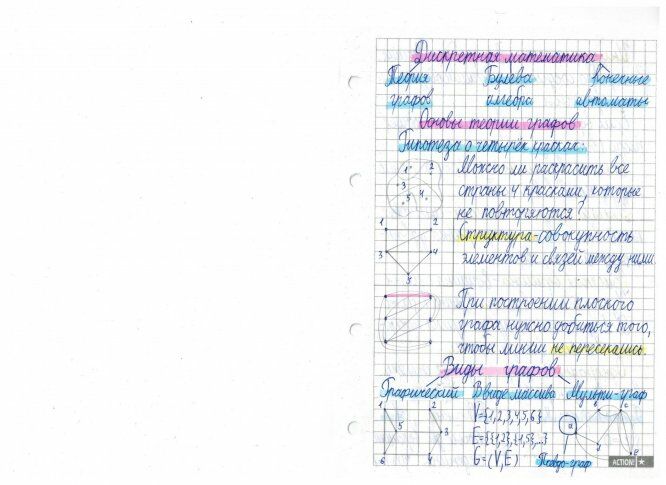 Дискретная математика
Теория Булева Конечные
графов алгебра автоматы
Основы теории графов
Гипотеза о четырёх красках:
1 2
3
5 4
Можно ли раскрасить все
страны 4 красками, которые
не повторяются?
1 2
3 4
5
Структура-совокупность
элементов и связей между ними.
При построении плоского
графа нужно добиться того,
чтобы линии не пересекались.
Виды графов
Графический В виде массива Мульти-граф
1 2
5 3
6 4
V={1,2,3,4,5,6}
E={{1,2},{1,5},...}
G=(V,E)
a
Псевдо-граф
ACTION!